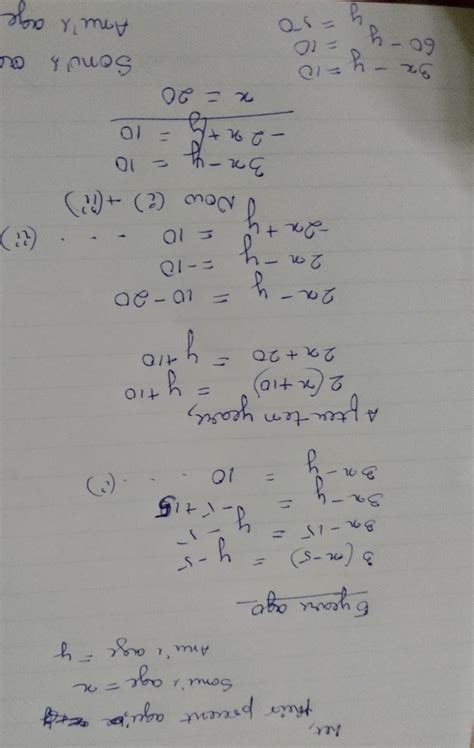 Let, their present age
Sonu's age = x
Anu's age = y
5 years ago
3(x-5) = y-5
3x-15 = y-5
3x-y = -5+15
3x-y = 10 . . . (i)
After ten years,
2(x+10) = y+10
2x+20 = y+10
2x-y = 10-20
2x-y = -10
-2x+y = 10 - . . . (ii)
Now (i) + (ii)
3x-y = 10
-2x+y = 10
x = 20
3x-y=10
60-y=10
y=50
Sonu's
Anu's age